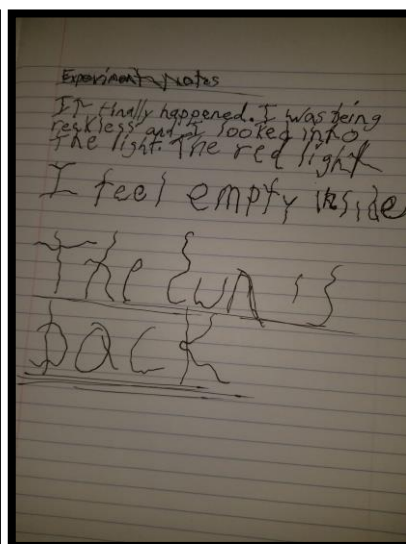 Experiment Notes
It finally happened. I was being
reckless and I looked into
the light. The red light
I feel empty inside
The Sun's
back